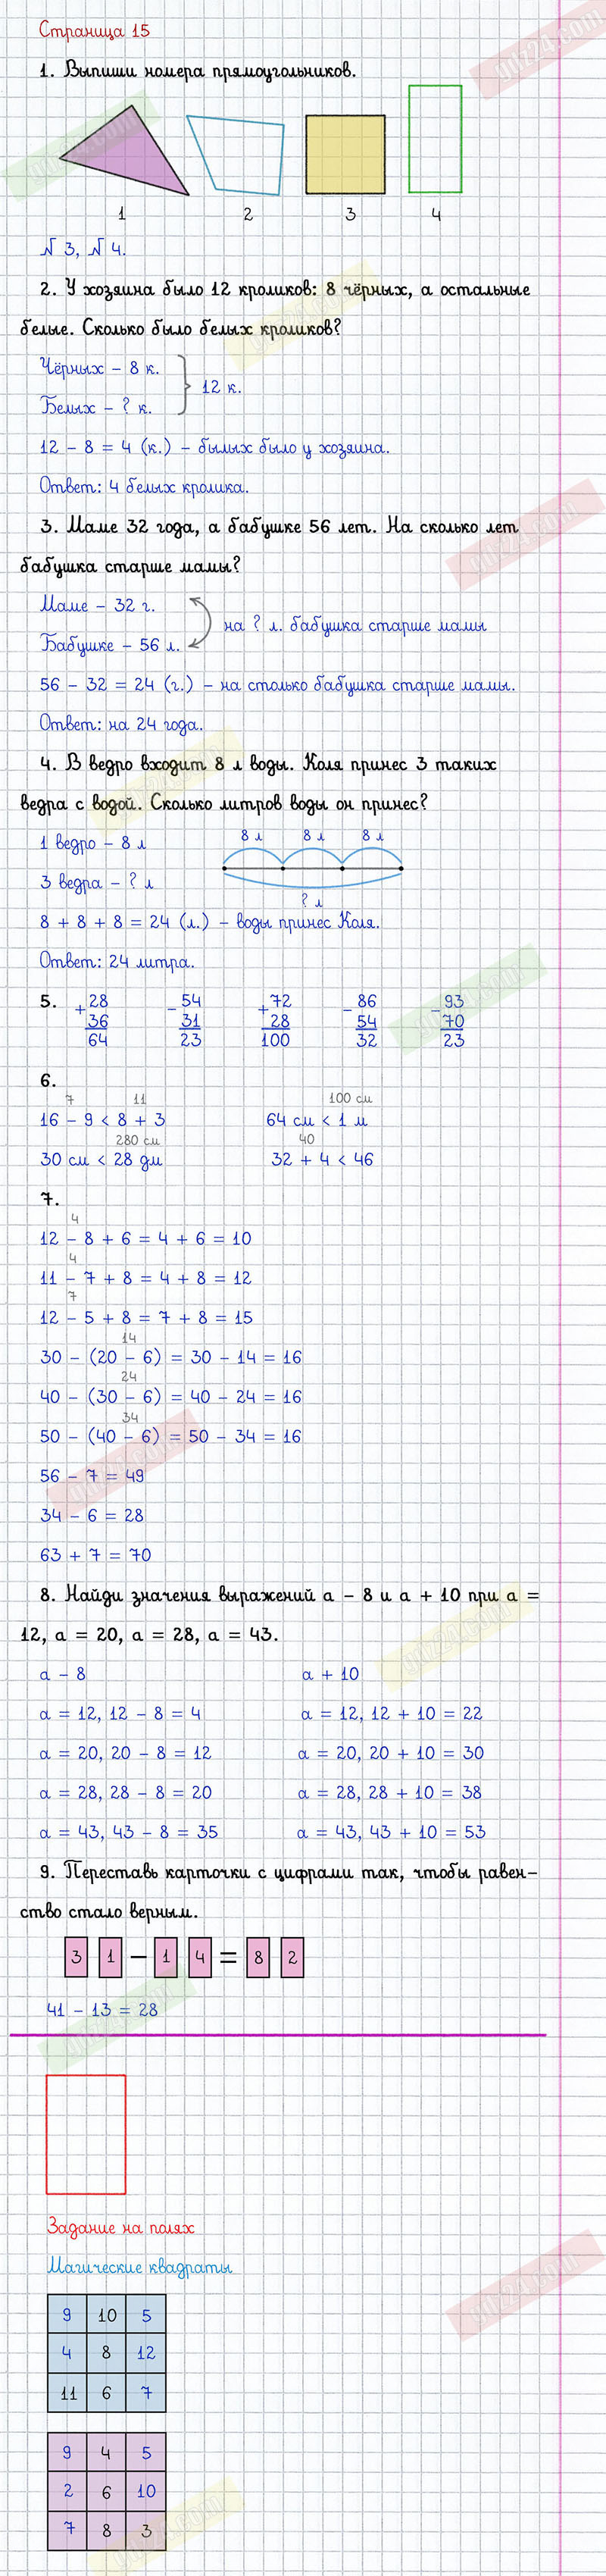 Страница 15
1. Выпиши номера прямоугольников.
1 2 3 4
№ 3, № 4.
2. У хозяина было 12 кроликов: 8 чёрных, а остальные
белые. Сколько было белых кроликов?
Чёрных – 8 к.
12 к.
Белых – ? к.
12 – 8 = 4 (к.) – былых было у хозяина.
Ответ: 4 белых кролика.
3. Маме 32 года, а бабушке 56 лет. На сколько лет
бабушка старше мамы?
Маме – 32 г.
на ? л. бабушка старше мамы
Бабушке – 56 л.
56 – 32 = 24 (г.) – на столько бабушка старше мамы.
Ответ: на 24 года.
4. В ведро входит 8 л воды. Коля принес 3 таких
ведра с водой. Сколько литров воды он принес?
8 л 8 л 8 л
1 ведро – 8 л
3 ведра – ? л
? л
8 + 8 + 8 = 24 (л.) – воды принес Коля.
Ответ: 24 литра.
5. + 28 – 54 + 72 – 86 – 93
36 31 28 54 70
64 23 100 32 23
6.
7 11 100 см
16 – 9 < 8 + 3 64 см < 1 м
280 см 40
30 см < 28 дм 32 + 4 < 46
7.
4
12 – 8 + 6 = 4 + 6 = 10
4
11 – 7 + 8 = 4 + 8 = 12
7
12 – 5 + 8 = 7 + 8 = 15
14
30 – (20 – 6) = 30 – 14 = 16
24
40 – (30 – 6) = 40 – 24 = 16
34
50 – (40 – 6) = 50 – 34 = 16
56 – 7 = 49
34 – 6 = 28
63 + 7 = 70
8. Найди значения выражений а – 8 и а + 10 при а =
12, а = 20, а = 28, а = 43.
а – 8 а + 10
а = 12, 12 – 8 = 4 а = 12, 12 + 10 = 22
а = 20, 20 – 8 = 12 а = 20, 20 + 10 = 30
а = 28, 28 – 8 = 20 а = 28, 28 + 10 = 38
а = 43, 43 – 8 = 35 а = 43, 43 + 10 = 53
9. Переставь карточки с цифрами так, чтобы равен–
ство стало верным.
3 1 – 1 4 = 8 2
41 – 13 = 28
Задание на полях
Магические квадраты
9 10 5
4 8 12
11 6 7
9 4 5
2 6 10
7 8 3